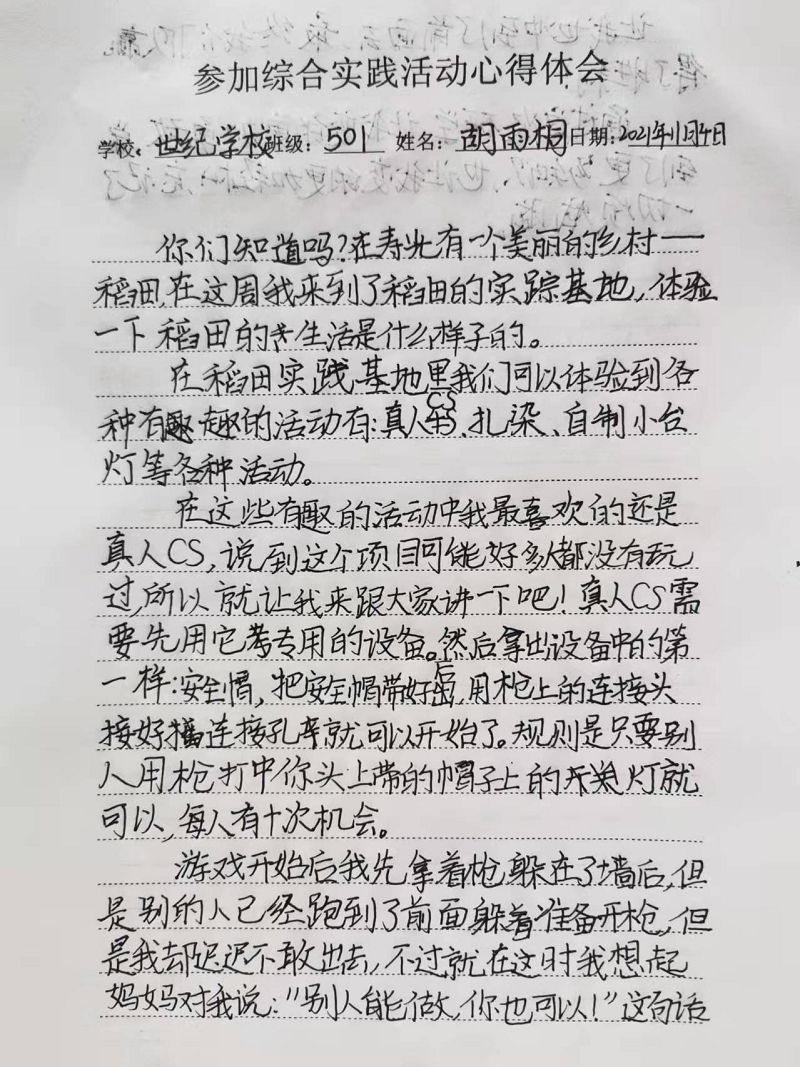 参加综合实践活动心得体会
学校：世纪学校班级：501 姓名：胡雨桐日期：2021年11月4日
你们知道吗？在寿光有一个美丽的乡村——
稻田，在这周我来到了稻田的实踪基地，体验
一下稻田的生活是什么样子的。
在稻田实践基地里我们可以体验到各
种有趣的活动有：真人CS、扎染、自制小台
灯等各种活动。
在这些有趣的活动中我最喜欢的还是
真人CS，说到这个项目可能好多人都没有玩
过，所以就让我来跟大家讲一下吧！真人CS需
要先用它专用的设备。然后拿出设备中的第
一样：安全帽，把安全帽带好后，用枪上的连接头
接好连接孔就可以开始了。规则是只要别
人用枪打中你头上带的帽子上的灯就
可以，每人有十次机会。
游戏开始后我先拿着枪躲在了墙后，但
是别的人已经跑到了前面躲着准备开枪，但
是我却迟迟不敢出去，不过就在这时我想起
妈妈对我说：“别人能做，你也可以！”这句话